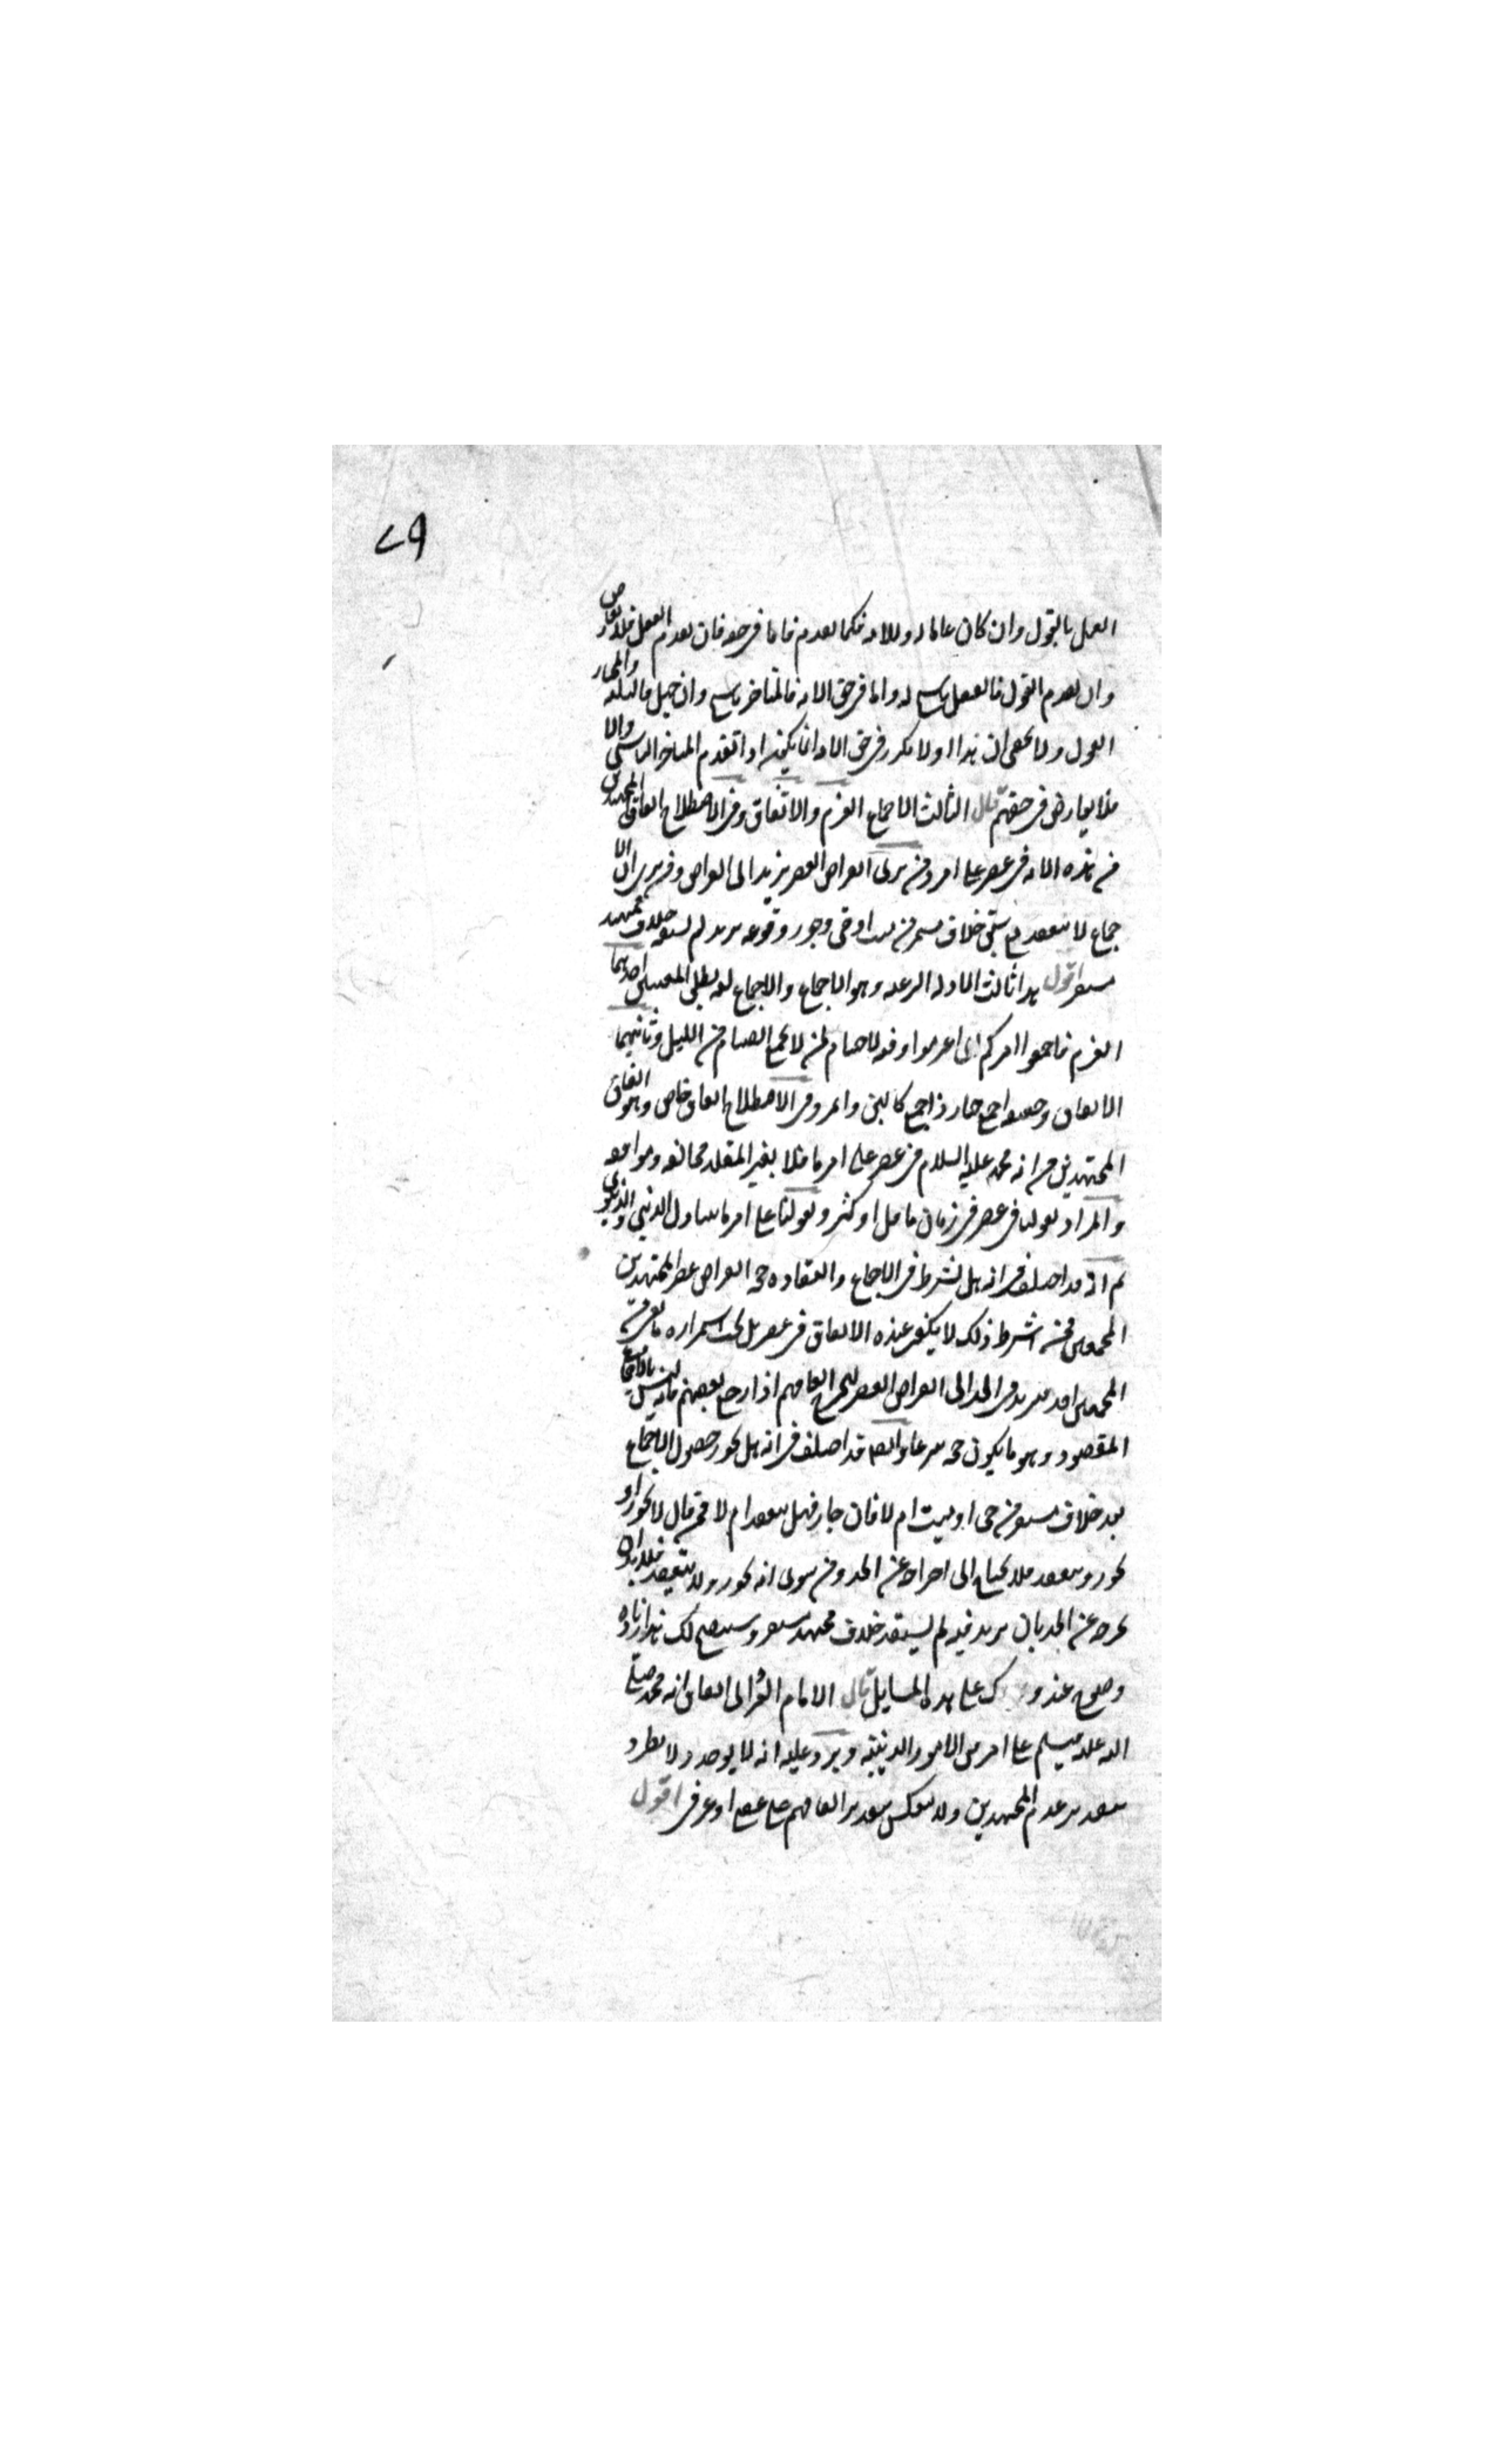 ٧٩
العمل بالقول وان كان عاما له وللامه فكما تقدم فاما فى حقه فان تقدم الفعل فلا تعارض
وان تقدم القول فالفعل ناسخ له واما فى حق الامه فالمتاخر ناسخ وان جهل فالثلثه والمختار
القول ولا يخفى ان هذا اولا مكرر فى حق الامه انما يكون اذا تقدم المتاخر التاسى والا
فلا يعارض فى حقهم قال الثالث الاجماع العزم والاتفاق وفى الاصطلاح اتفاق المجتهدين
من هذه الامه فى عصر على امر ومن يرى انقراض العصر يزيد الى انقراض ومن يرى ان الا
جماع لا ينعقد مع سبق خلاف مستمر من ميت او حى وجوز وقوعه يزيد لم يسبقه خلاف مجتهد
مستقر اقول هذا ثالث الادله الشرعيه وهو الاجماع والاجماع لغه يطلق لمعنيين احدهما
العزم فاجمعوا امركم اى اعزموا وقوله لا صيام لمن لا يجمع الصيام من الليل وثانيهما
الاتفاق وحقيقه اجمع صار ذا جمع كالبن والتمر وفى الاصطلاح اتفاق خاص وهو اتفاق
المجتهدين من امه محمد عليه السلام فى عصر على امر ما فلا يعتبر المقلد مخالفه وموافقه
والمراد بقولنا فى عصر فى زمان ما قل او كثر وقولنا على امر ما يتناول الدينى والدنيوى
ثم انه قد اختلف فى انه هل يشترط فى الاجماع وانعقاده حجه انقراض عصر المجتهدين
المجمعين فمن اشترط ذلك لا يكفى عنده الاتفاق فى عصر بل يجب استمراره ما بقى من
المجمعين احد يزيد فى الحد الى انقراض العصر ليخرج اتفاقهم اذا رجع بعضهم فانه ليس بالاجماع
المقصود وهو ما يكون حجه شرعا وايضا قد اختلف فى انه هل يجوز حصول الاجماع
بعد خلاف مستقر من حى او ميت ام لا فان جاز فهل ينعقد ام لا فمن قال لا يجوز او
يجوز وينعقد فلا يحتاج الى اخراجه عن الحد ومن يرى انه يجوز ولا ينعقد فلا بد ان
يخرجه عن الحد بان يزيد فيه لم يسبقه خلاف مجتهد مستقر وسيتضح لك هذا زياده
وضوح عند على هذه المسايل قال الامام الغزالى اتفاق امه محمد صلى
الله عليه وسلم على امر من الامور الدينيه ويرد عليه انه لا يوجد ولا يطرد
بتقدير عدم المجتهدين ولا ينعكس بتقدير اتفاقهم على عقلى او عرفى اقول